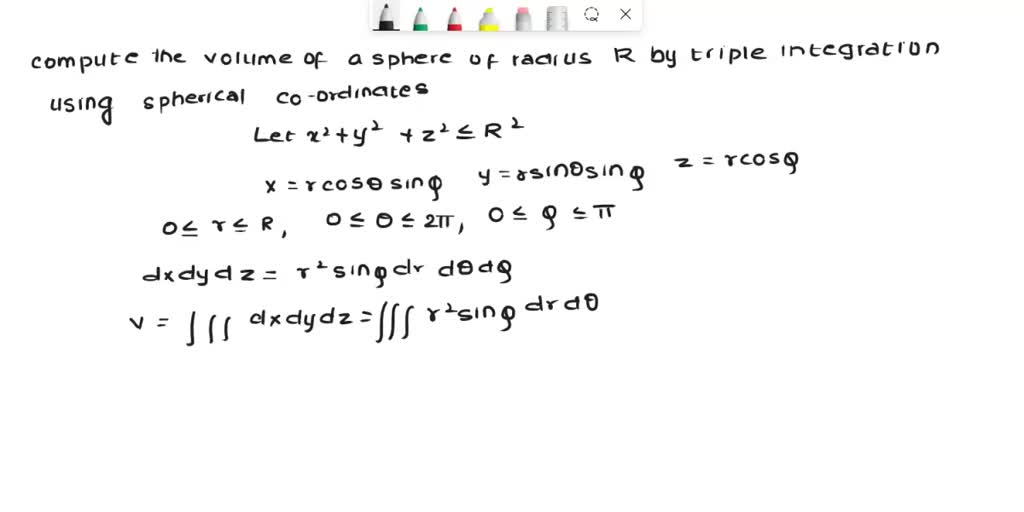 compute the volume of a sphere of radius R by triple integration
using spherical co-ordinates
Let x²+y²+z² ≤ R²
x = rcosθ sinφ y = rsinθsinφ z = rcosφ
0 ≤ r ≤ R, 0 ≤ θ ≤ 2π, 0 ≤ φ ≤ π
dxdydz = r²sinφdr dθdφ
v = ∫∫∫ dxdydz = ∫∫∫ r²sinφ drdθ